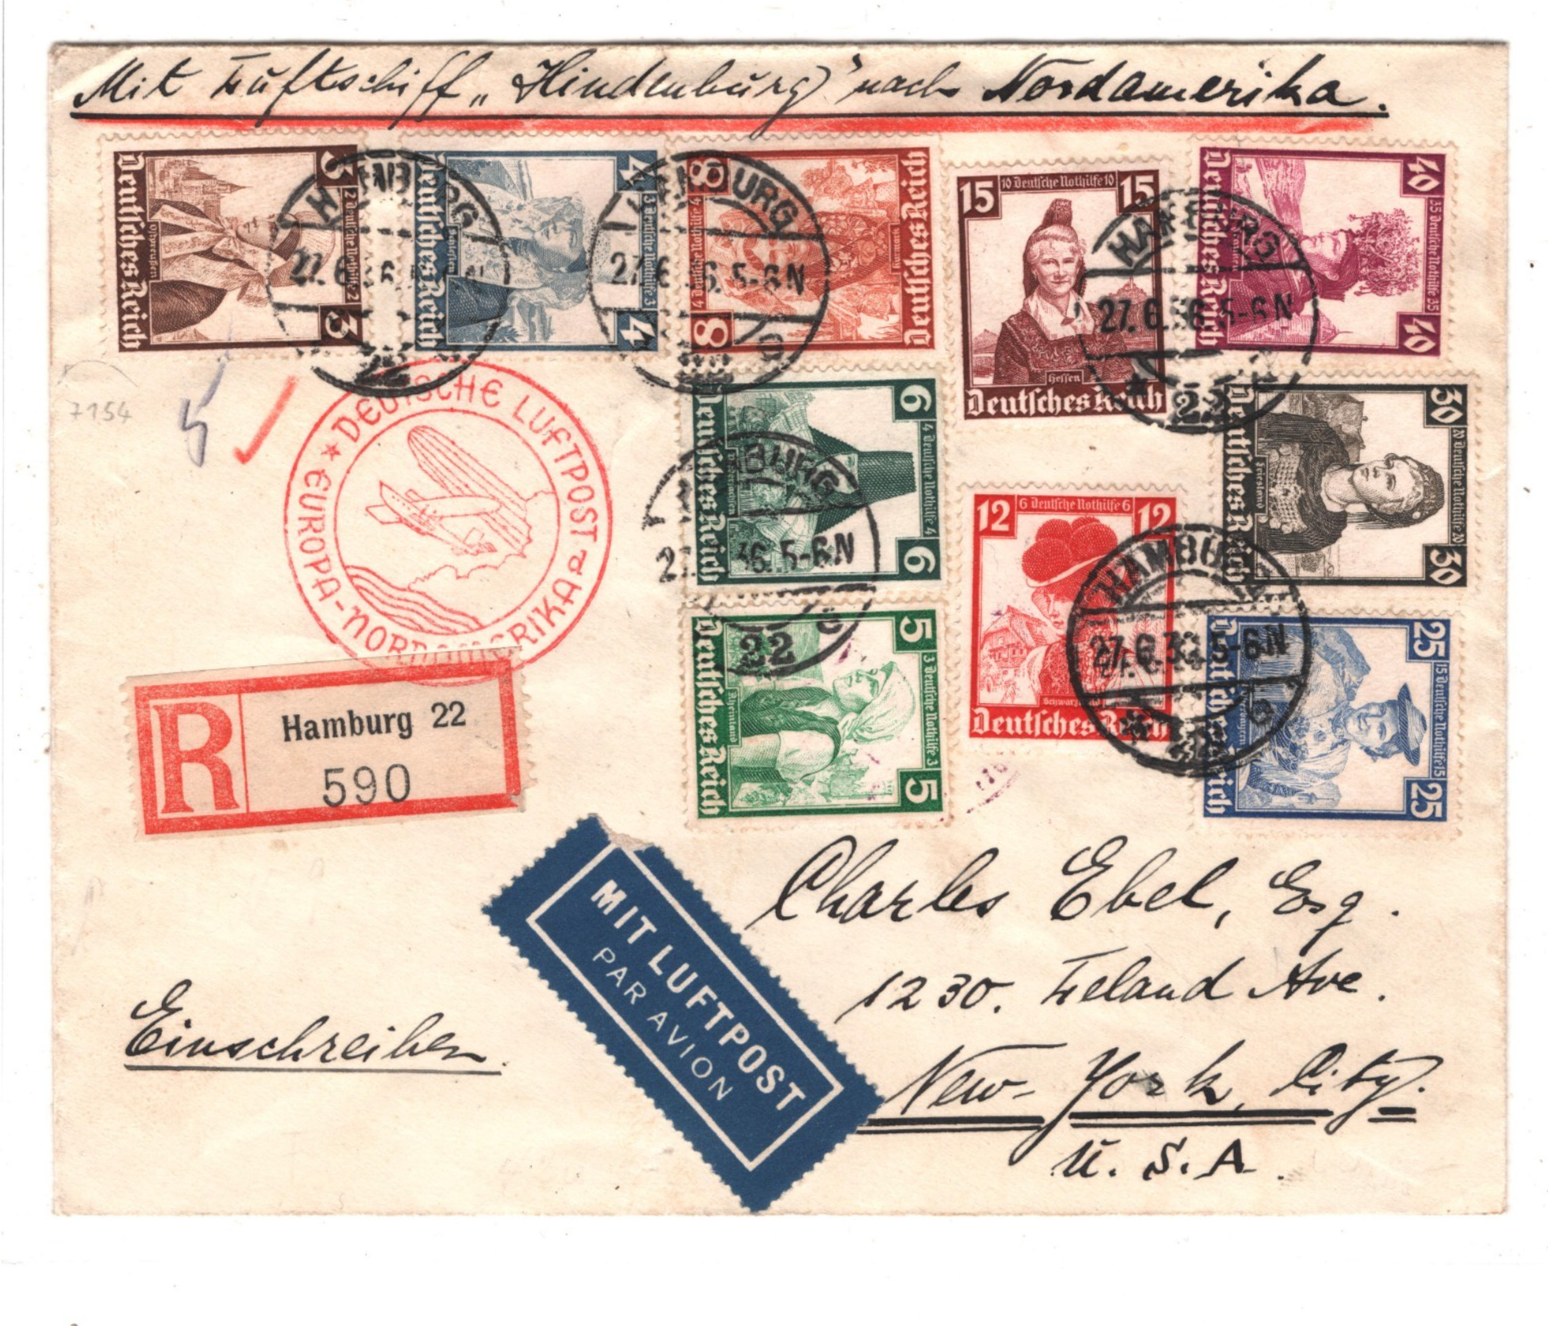 Mit Luftschiff „Hindenburg" nach Nordamerika.
3 Deutsches Reich 3
4 Deutsches Reich 4
8 Deutsche Nothilfe 4 Deutsches Reich 8
15 10 Deutsche Nothilfe 10 15
Hessen
Deutsches Reich
40 35 Deutsche Nothilfe 35 40
Deutsches Reich
HAMBURG
27.6.36.5-6N
HAMBURG
27.6.36.5-6N
HAMBURG
27.6.36.5-6N
22
7154
5
DEUTSCHE LUFTPOST
EUROPA-NORDAMERIKA
a
6 4 Deutsche Nothilfe 4 6
Deutsches Reich
30 20 Deutsche Nothilfe 20 30
HAMBURG
36.5-6N
22
12 6 Deutsche Nothilfe 6 12
Deutsches Reich
HAMBURG
27.6.36.5-6N
5 3 Deutsche Nothilfe 3 5
Rheinland
Deutsches Reich
25 15 Deutsche Nothilfe 15 25
R Hamburg 22
590
MIT LUFTPOST
PAR AVION
Charles Ebel, Esq.
1230. Leland Ave.
New-York, City.
U.S.A.
Einschreiben.